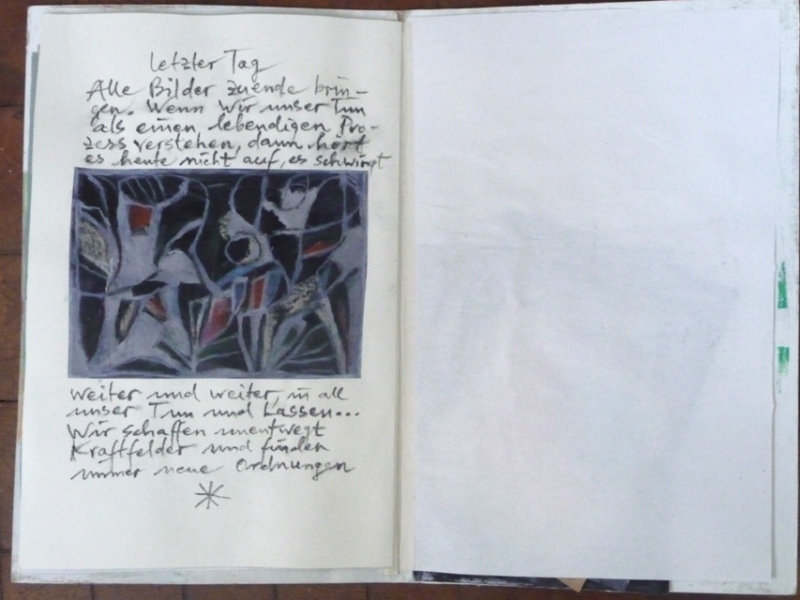 letzter Tag
Alle Bilder zuende brin-
gen. Wenn wir unser Tun
als einen lebendigen Pro-
zess verstehen, dann hört
es heute nicht auf, es schwingt
weiter und weiter, in all
unser Tun und Lassen...
Wir schaffen unentwegt
Kraftfelder und finden
immer neue Ordnungen